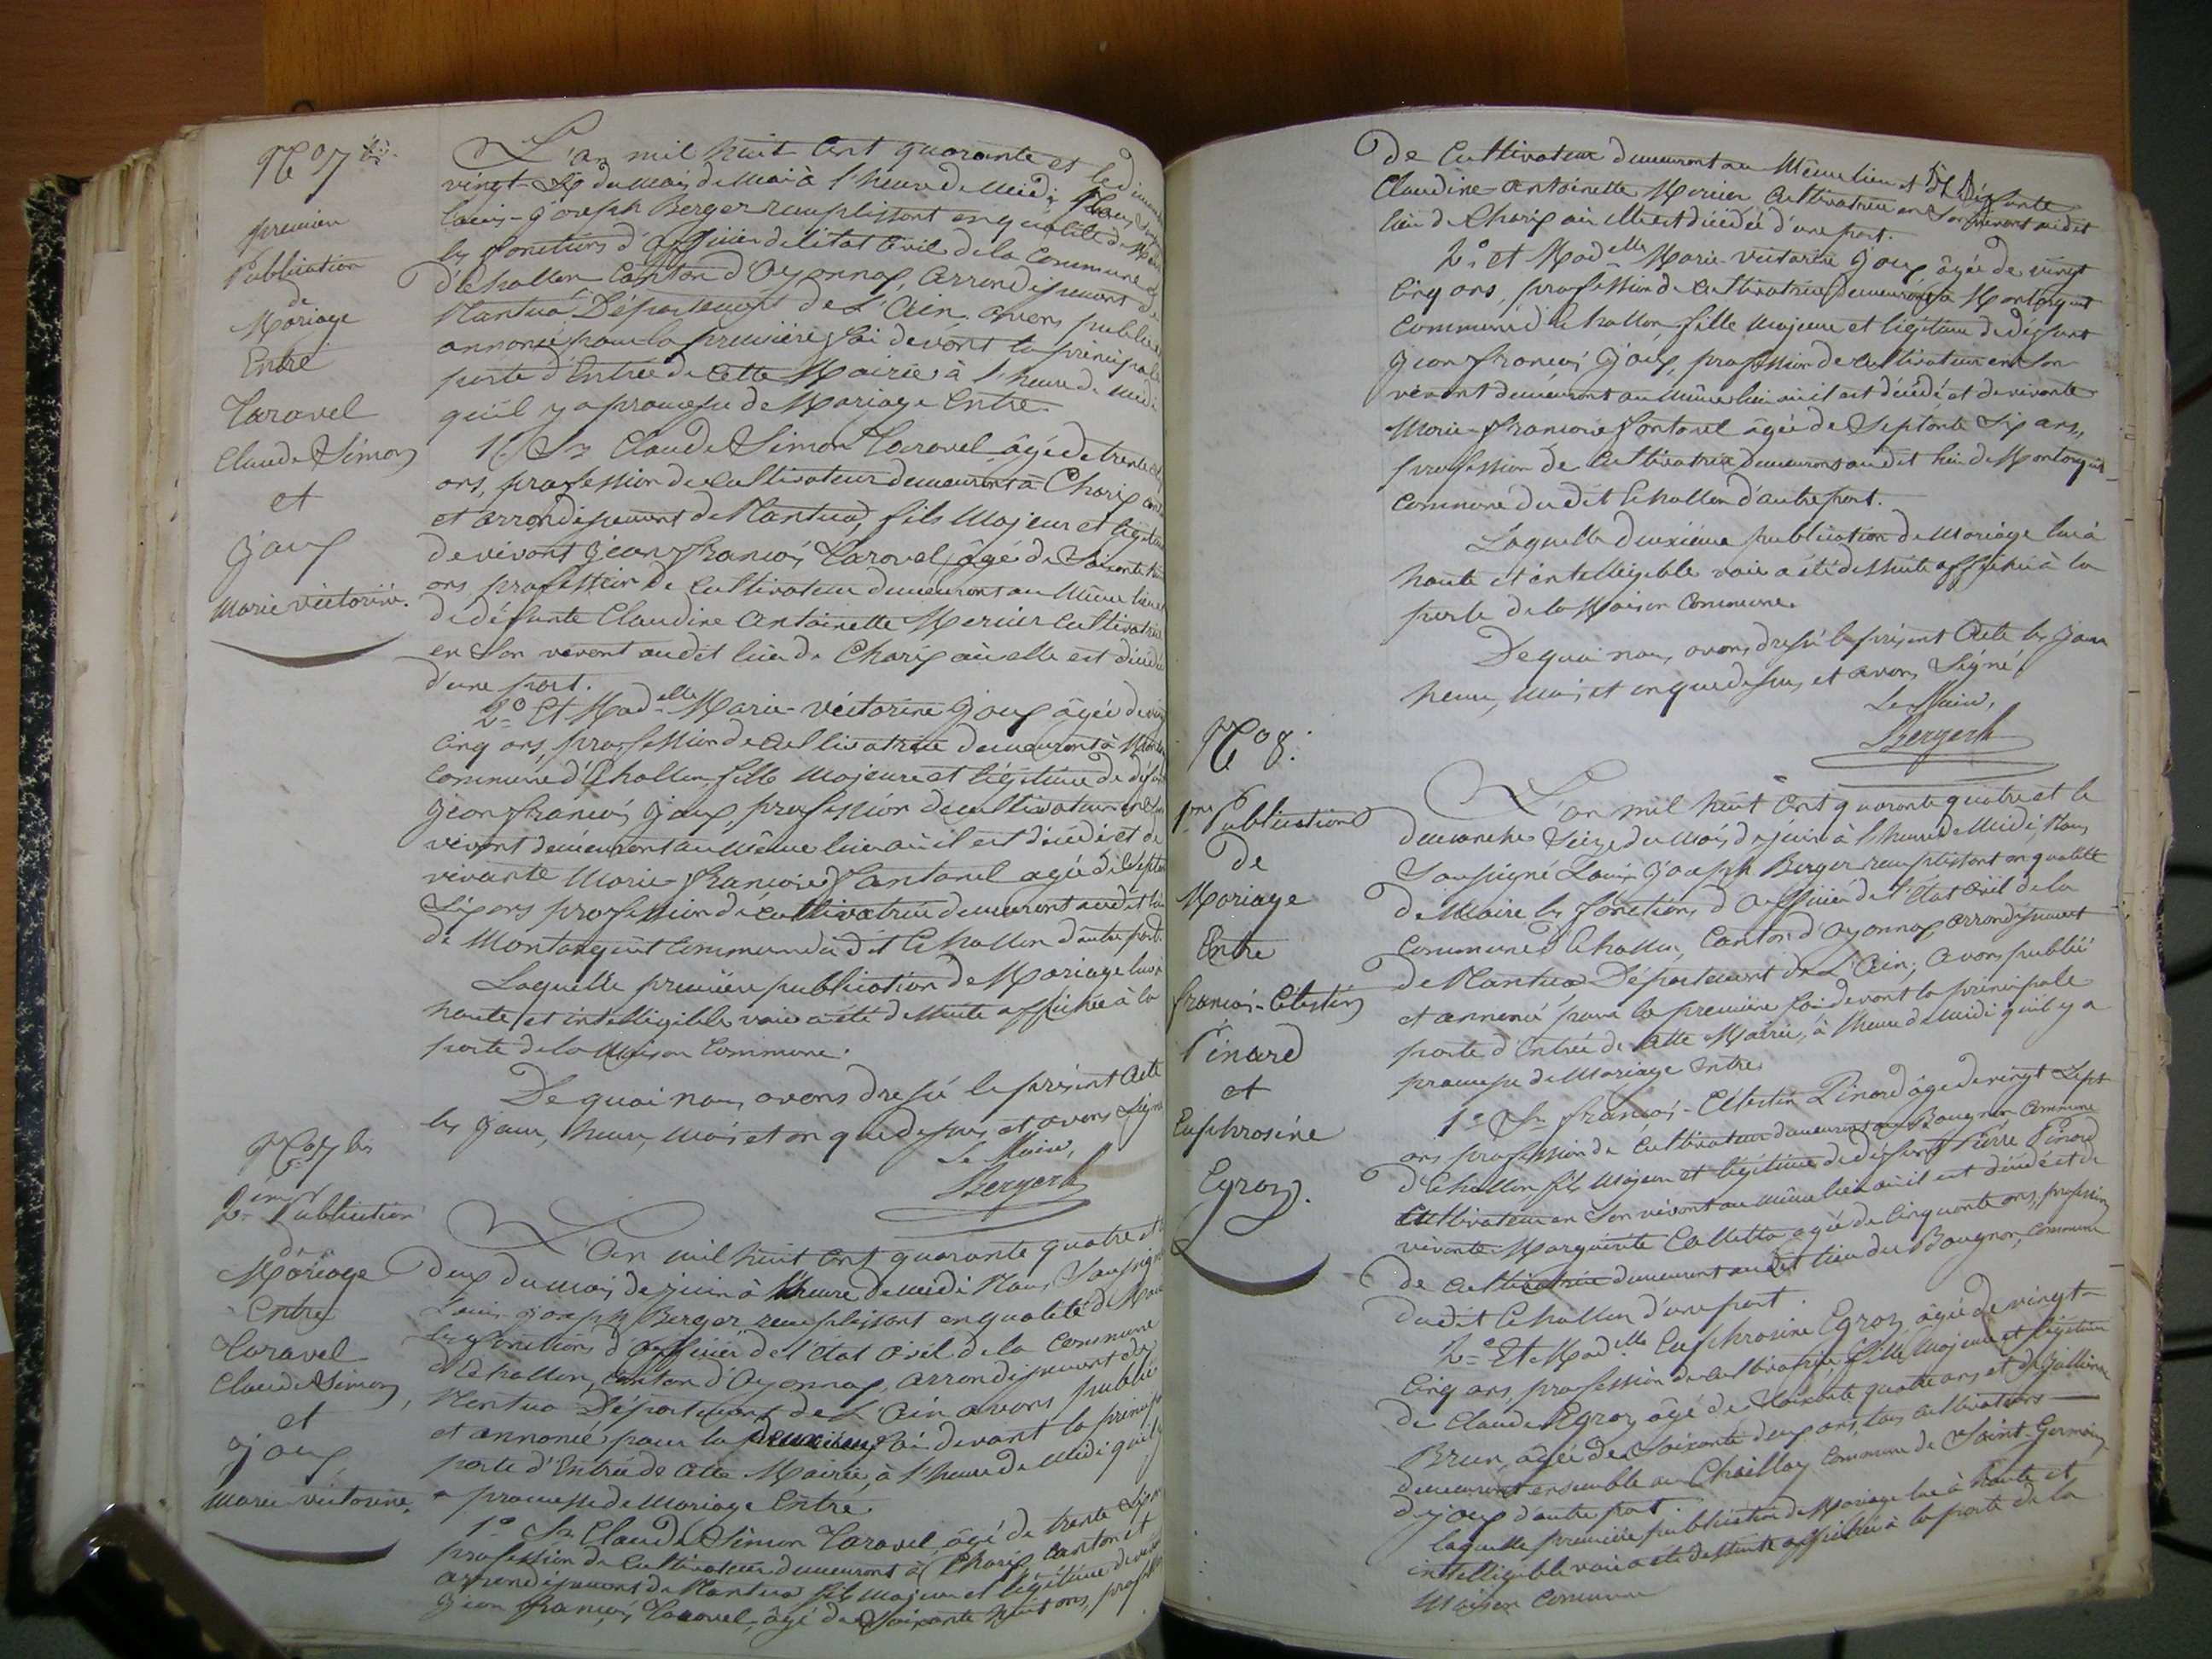 N.o 7 bis.
première
Publication
de
Mariage
Entre
Taravel
Claude Simon
et
Joux
Marie victorine.
L'an mil huit Cent quarante et le dimanche
vingt-Six du mois de Mai à l'heure de Midi, Nous
Louis-Joseph Berger remplissant en qualité de Maire
les fonctions d'officier de l'état Civil de la Commune
d'Echallon Canton d'Oyonnax, arrondissement de
Nantua Département de L'Ain, avons publié et
annoncé pour la première foi devant la principale
porte d'Entrée de Cette Mairie à l'heure de midi
qu'il y a promesse de Mariage Entre.
1.o Sr Claude Simon Taravel âgé de trente
ans, profession de Cultivateur demeurant à Charix
et arrondissement de Nantua, fils Majeur et légitime
de vivant Jean François Taravel, âgé de Soixante
ans profession de Cultivateur demeurant au Même lieu
de défunte Claudine Antoinette Mercier Cultivatrice
en Son vivant audit lieu de Charix où elle est décédée
d'une part.
2.o Et Madelle Marie-Victorine Joux âgée de vingt
Cinq ans, profession de Cultivatrice demeurant à
Commune d'Echallon, fille Majeure et légitime de défunt
Jean François Joux, profession de cultivateur en Son
vivant demeurant au Même lieu où il est décédé et de
vivante Marie-Françoise Fontanel agée de Septante
Six ans profession de Cultivatrice demeurant audit lieu
de Montangeut Commune dudit Echallon d'autre part.
Laquelle première publication de Mariage lue à
haute et intelligible voie a été de Suite affichée à la
porte de la Maison Commune.
De quoi nous avons dressé le présent Acte
les Jour, heure, Mois et an que dessus et avons Signé
Le Maire,
Berger
N.o 7 bis
2.eme Publication
de
Mariage
Entre
Taravel
Claude Simon,
et
Joux
Marie-victorine.
L'an mil huit Cent quarante quatre et le
deux du mois de Juin à l'heure de midi Nous Soussigné
Louis Joseph Berger remplissant en qualité de Maire
les fonctions d'officier de l'Etat Civil de la Commune
d'Echallon, Canton d'Oyonnax, arrondissement de
Nantua Département de L'Ain avons publié
et annoncé pour la deuxième foi devant la principale
porte d'Entrée de Cette Mairie, à l'heure de Midi qu'il y
a promesse de Mariage Entre.
1.o Sr Claude Simon Taravel, âgé de trente Six
profession de Cultivateur demeurant à Charix Canton et
arrondissement de Nantua fils majeur et légitime de vivant
Jean François Taravel, âgé de Soixante huit ans, profession
de Cultivateur demeurant au Même lieu et de défunte
Claudine-Antoinette Mercier Cultivatrice en Son vivant audit
lieu de Charix où elle est décédée d'une part.
2.o et Madelle Marie-victorine Joux âgée de vingt
Cinq ans, profession de Cultivatrice demeurant à Montangeut
Commune d'Echallon fille Majeure et légitime de défunt
Jean François Joux, profession de Cultivateur en Son
vivant demeurant au Même lieu où il est décédé et de vivante
Marie-Françoise Fontanel âgée de Septante Six ans,
profession de Cultivatrice demeurant audit lieu de Montangeut
Commune dudit Echallon d'autre part.
Laquelle deuxième publication de Mariage lue à
haute et intelligible voie a été de Suite affichée à la
porte de la Maison Commune.
De quoi nous avons dressé le présent Acte les Jour
heure, Mois et an que dessus, et avons Signé,
Le Maire,
Berger
N.o 8.
1.ere Publication
de
Mariage
Entre
François-Célestin
Pinard
et
Euphrosine
Egroz.
L'an mil huit Cent quarante quatre et le
dimanche Seize du Mois de Juin à l'heure de Midi, Nous
Soussigné Louis Joseph Berger remplissant en qualité
de Maire les fonctions d'officier de l'Etat Civil de la
Commune d'Echallon, Canton d'Oyonnax arrondissement
de Nantua Département de L'Ain, Avons publié
et annoncé pour la première foi devant la principale
porte d'Entrée de Cette Mairie, à l'heure de Midi qu'il y a
promesse de Mariage Entre
1.o Sr François-Célestin Pinard âgé de vingt Sept
ans profession de Cultivateur demeurant au Bougnon Commune
d'Echallon fils Majeur et légitime de défunt Pierre Pinard
Cultivateur en Son vivant au même lieu où il est décédé et de
vivante Marguerite Colletta agée de Cinquante ans, profession
de Cultivatrice demeurant audit lieu du Bougnon, Commune
dudit Echallon d'une part.
2.o Et Madelle Euphrosine Egroz âgée de vingt-
Cinq ans, profession de Cultivatrice, fille Majeure et légitime
de Claude Egroz âgé de Soixante quatre ans et de Jullienne
Brun, agée de Soixante deux ans, tous Cultivateurs
demeurant ensemble au Choillay Commune de Saint-Germain
de Joux d'autre part.
laquelle première publication de Mariage lue à haute et
intelligible voie a été de suite affichée à la porte de la
Maison Commune